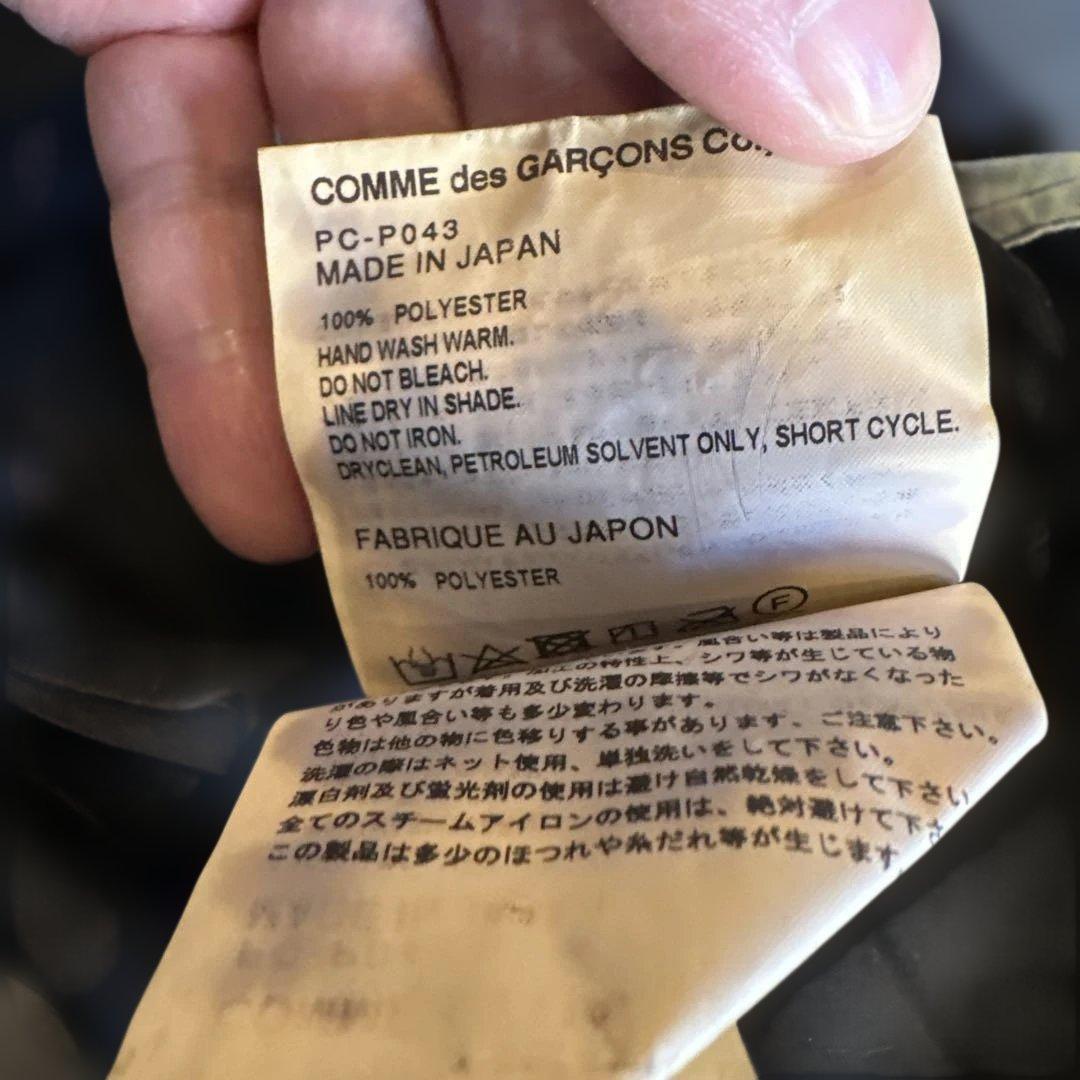 COMME des GARÇONS CO.,
PC-P043
MADE IN JAPAN
100% POLYESTER
HAND WASH WARM.
DO NOT BLEACH.
LINE DRY IN SHADE.
DO NOT IRON.
DRYCLEAN, PETROLEUM SOLVENT ONLY, SHORT CYCLE.
FABRIQUE AU JAPON
100% POLYESTER
F
風合い等は製品により
加工の特性上、シワ等が生じている物
がありますが着用及び洗濯の摩擦等でシワがなくなった
り色や風合い等も多少変わります。
色物は他の物に色移りする事があります、ご注意下さい。
洗濯の際はネット使用、単独洗いをして下さい。
漂白剤及び蛍光剤の使用は避け自然乾燥をして下さい
全てのスチームアイロンの使用は、絶対避けて下さ
この製品は多少のほつれや糸だれ等が生じます